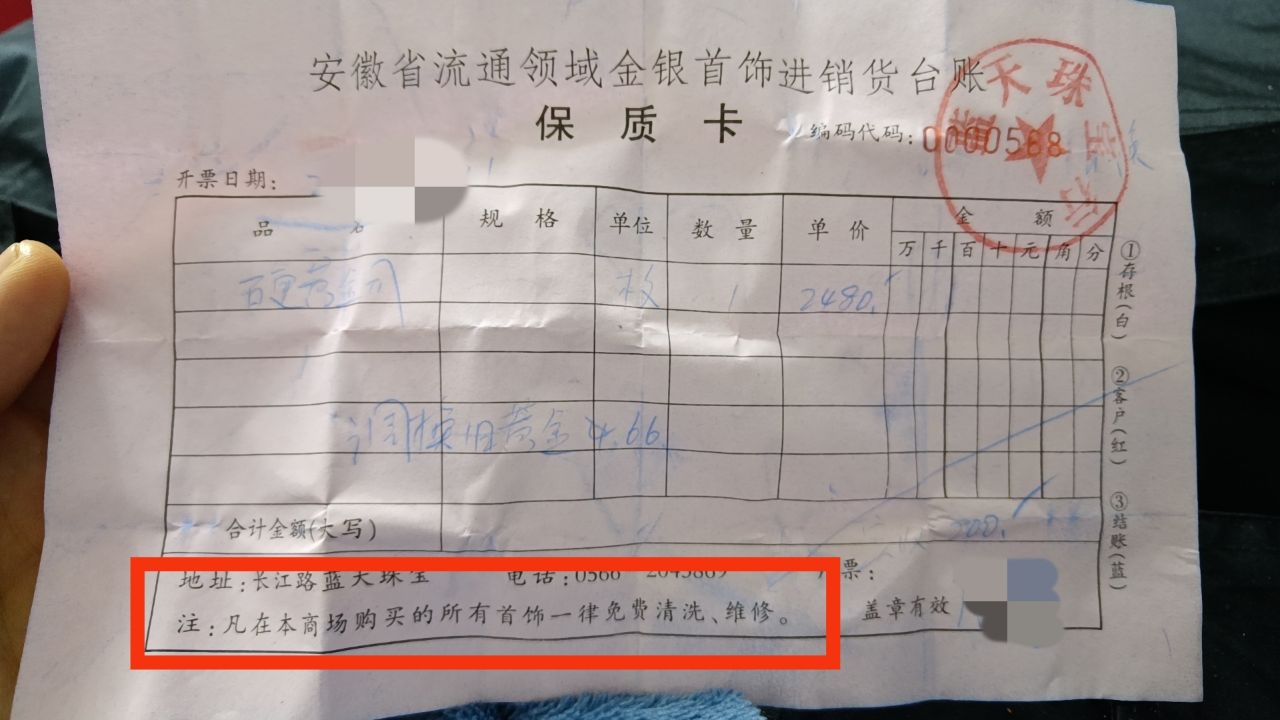 安徽省流通领域金银首饰进销货台账
保质卡
编码代码:0000568
开票日期:
品 规格 单位 数量 单价 金额
万 千 百 十 元 角 分
枚 1 2480.
调换旧黄金4.66.
合计金额(大写)
地址:长江路蓝天珠宝 电话:0566 2045889 票:
注:凡在本商场购买的所有首饰一律免费清洗、维修。 盖章有效
①存根(白) ②客户(红) ③结账(蓝)